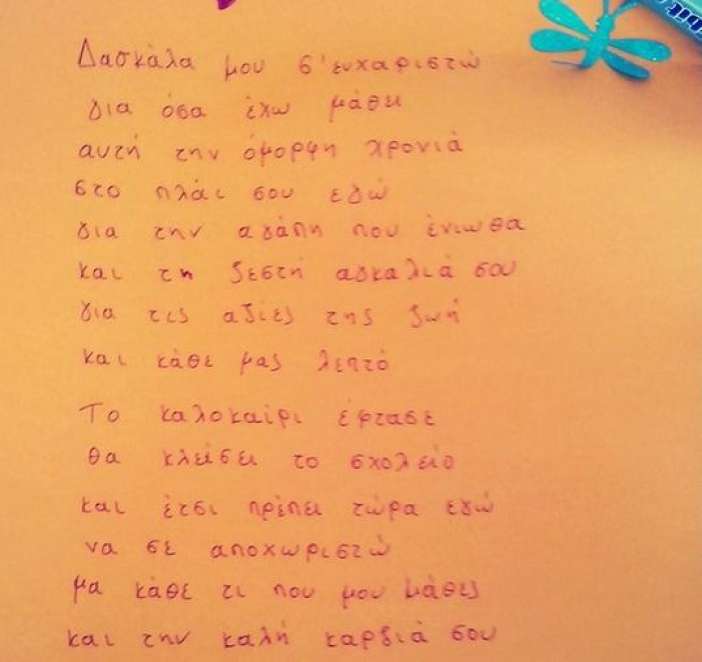 Δασκάλα μου σ'ευχαριστώ
για όσα έχω μάθει
αυτή την όμορφη χρονιά
στο πλάι σου εδώ
για την αγάπη που ένιωθα
και τη ζεστή αγκαλιά σου
για τις αξίες της ζωή
και κάθε μας λεπτό
Το καλοκαίρι έφτασε
θα κλείσει το σχολείο
και έτσι πρέπει τώρα εγώ
να σε αποχωριστώ
μα κάθε τι που μου μάθες
και την καλή καρδιά σου